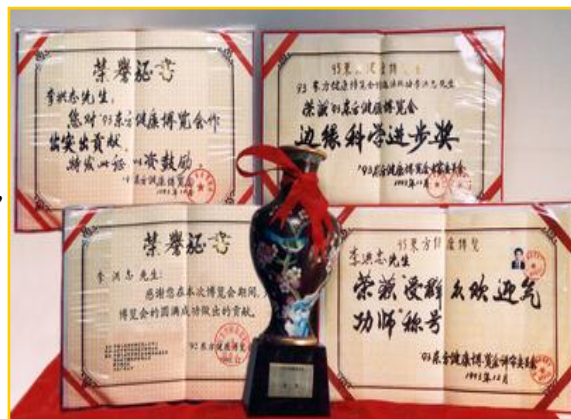 荣誉证书
李洪志先生:
您对'93东方健康博览会作
出突出贡献,
特发此证 以资鼓励。
'93东方健康博览会
1993年12月
荣获'93东方健康博览会
边缘科学进步奖
'93东方健康博览会评审委员会
1993年12月
荣誉证书
李洪志 先生:
感谢您在本次博览会期间,
博览会的圆满成功做出的贡献。
'92东方健康博览
李洪志先生
荣获"受群众欢迎气
功师"称号
'93东方健康博览会评审委员会
1993年12月